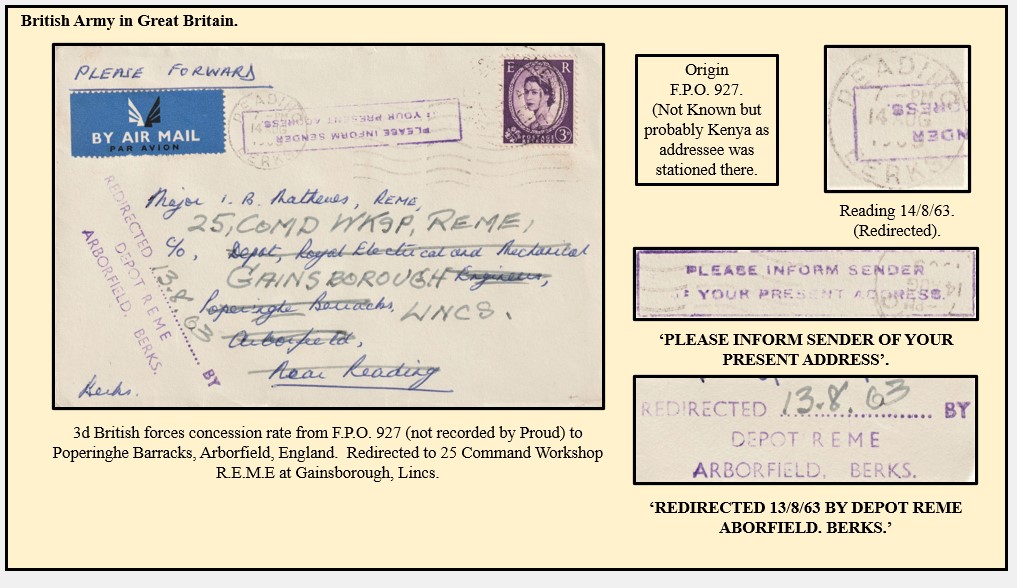 British Army in Great Britain.
PLEASE FORWARD
BY AIR MAIL
PAR AVION
READING
14 AUG
BERKS
PLEASE INFORM SENDER
YOUR PRESENT ADDRESS
E R
3D
Major I. B. Mathews, REME,
25, COMD WKSP, REME,
c/o, Depot, Royal Electrical and Mechanical
GAINSBOROUGH Engineers,
Poperinghe Barracks, LINCS.
Arborfield,
Near Reading
Berks.
REDIRECTED 13.8.63 BY
DEPOT REME
ARBORFIELD. BERKS.
3d British forces concession rate from F.P.O. 927 (not recorded by Proud) to
Poperinghe Barracks, Arborfield, England. Redirected to 25 Command Workshop
R.E.M.E at Gainsborough, Lincs.
Origin
F.P.O. 927.
(Not Known but
probably Kenya as
addressee was
stationed there.
READING
14 AUG
BERKS
NDER
DRESS
Reading 14/8/63.
(Redirected).
PLEASE INFORM SENDER
YOUR PRESENT ADDRESS.
‘PLEASE INFORM SENDER OF YOUR
PRESENT ADDRESS’.
REDIRECTED 13.8.63 BY
DEPOT REME
ARBORFIELD. BERKS.
‘REDIRECTED 13/8/63 BY DEPOT REME
ABORFIELD. BERKS.’